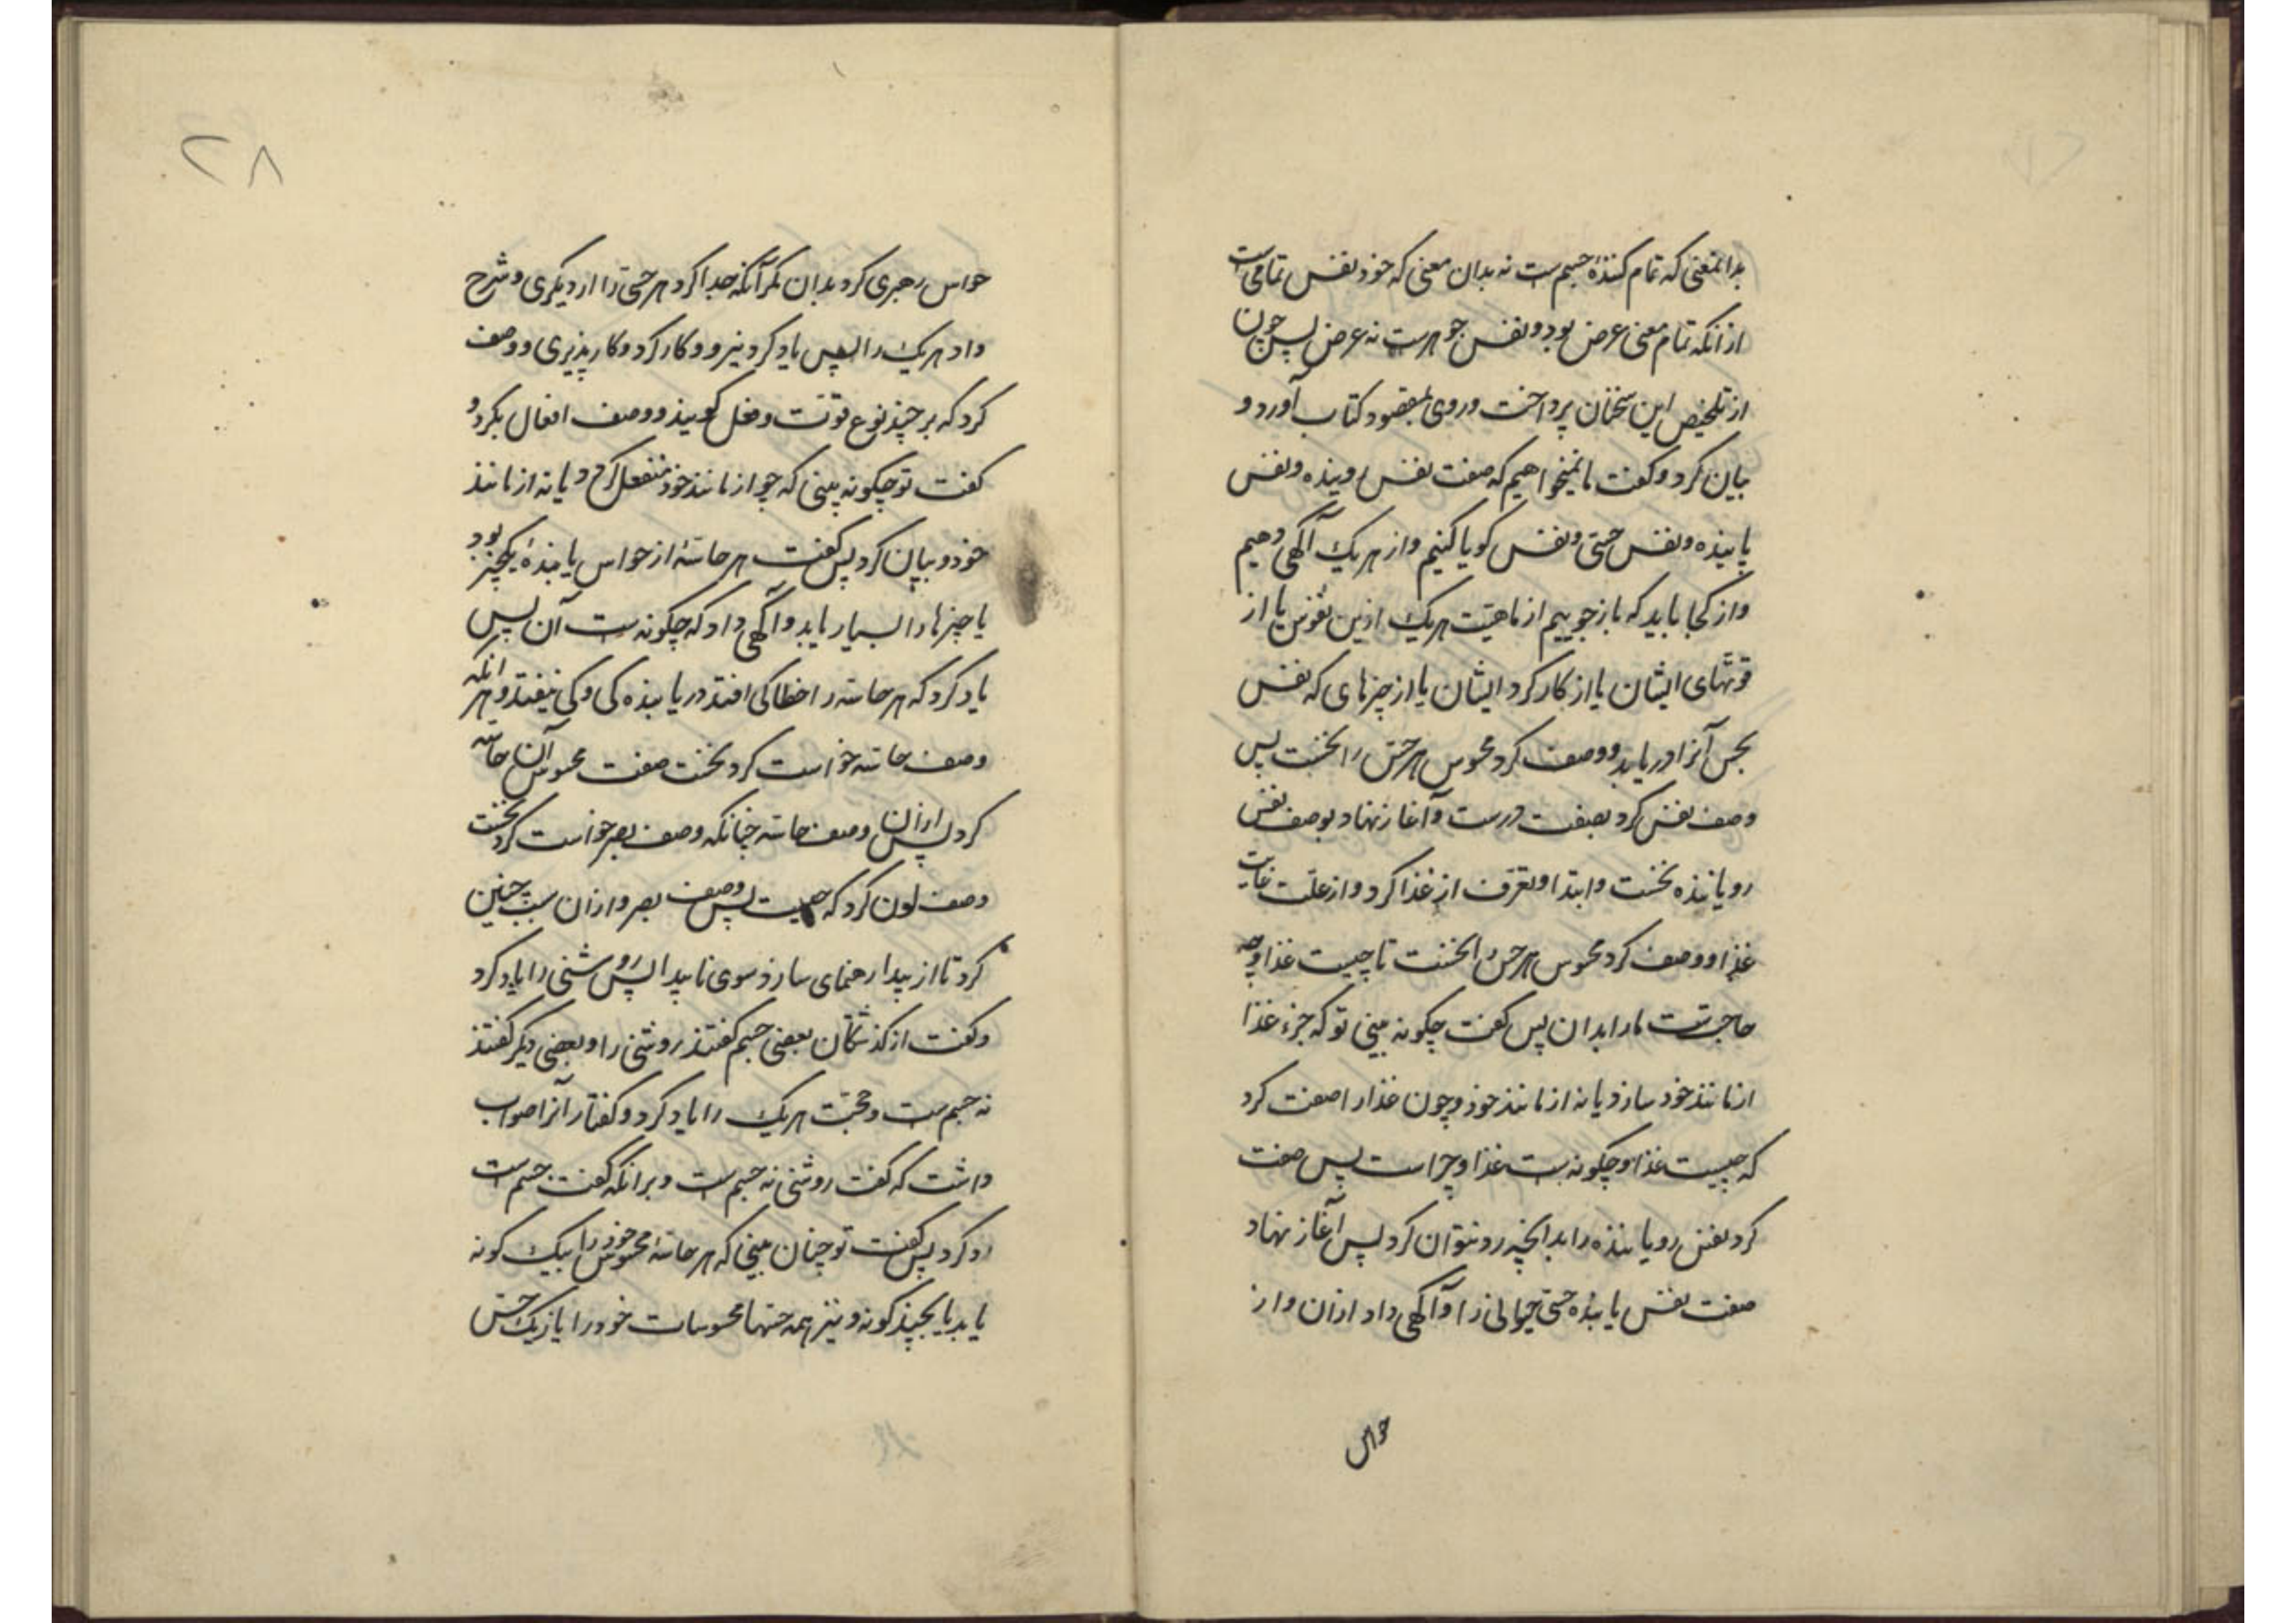 بدانمعنی که تمام کنندهٔ جسم ست نه بدان معنی که خود نفس تمامی است
از انکه تمام معنی عرض بود و نفس جوهرست نه عرض پس چون
از تلخیص این سخنان پرداخت و روی بمقصود کتاب آورد و
بیان کرد و گفت ما نمیخواهیم که صفت نفس روینده و نفس
یابنده و نفس حسی و نفس گویا کنیم و از هریک آگهی دهیم
و از کجا باید که باز جوییم از ماهیّت هریک ازین نفوس یا از
قوتهای ایشان یا از کارکرد ایشان یا از چیزهای که نفس
بحس آنرا دریابد و وصف کرد محسوس هر حس را نخست پس
وصف نفس کرد بصفت درست و آغاز نهاد بوصف نفس
رویاننده نخست و ابتدا و تعرف از غذا کرد و از علّت غایت
غذا و وصف کرد محسوس هر حس را نخست تا چیست غذا و چه
حاجتست ما را بدان پس گفت چگونه بینی تو که جزء غذا
از مانند خود سازد یا نه از مانند خود و چون غذا را صفت کرد
که چیست غذا و چگونه ست غذا و چراست پس صفت
کرد نفس رویاننده را بدانچه رد نتوان کرد پس آغاز نهاد
صفت نفس یابندهٔ حسی حیوانی را و آگهی داد ازان و از
حواس
۲۸
حواس رهبری کرد بدان مگر آنکه جدا کرد هر حسی را از دیگری و شرح
داد هریک را پس یاد کرد نیرو و کارکرد و کارپذیری و وصف
کرد که بر چند نوع قوتست و فعل گویند و وصف افعال بکرد و
گفت تو چگونه بینی که چو از مانند خود منفعل گردد یا نه از مانند
خود و بیان کرد پس گفت هر حاسّهٔ از حواس یابندهٔ یکچیز بود
یا چیزها را بسیار یابد و آگهی داد که چگونه ست آن پس
یاد کرد که هر حاسّه را خطا کی افتد در یابندگی و کی نیفتد و هر انگه
وصف حاسّه خواست کرد نخست صفت محسوس آن حاسّه
کرد پس ازان وصف حاسّه چنانکه وصف بصر خواست کرد نخست
وصف لون کرد که چیست پس وصف بصر و ازان سبب چنین
کرد تا از پیدا رهنمای سازد سوی ناپیدا پس روشنی را یاد کرد
و گفت از گذشتگان بعضی جسم گفتند روشنی را و بعضی دیگر گفتند
نه جسم ست و حجّت هریک را یاد کرد و گفتار آنرا صواب
داشت که گفت روشنی نه جسم ست و برانکه گفت جسم ست
رد کرد پس گفت تو چنان بینی که هر حاسّهٔ محسوس خود را بیک گونه
یابد یا بچند گونه و نیز همه حسها محسوسات خود را باز یک حس